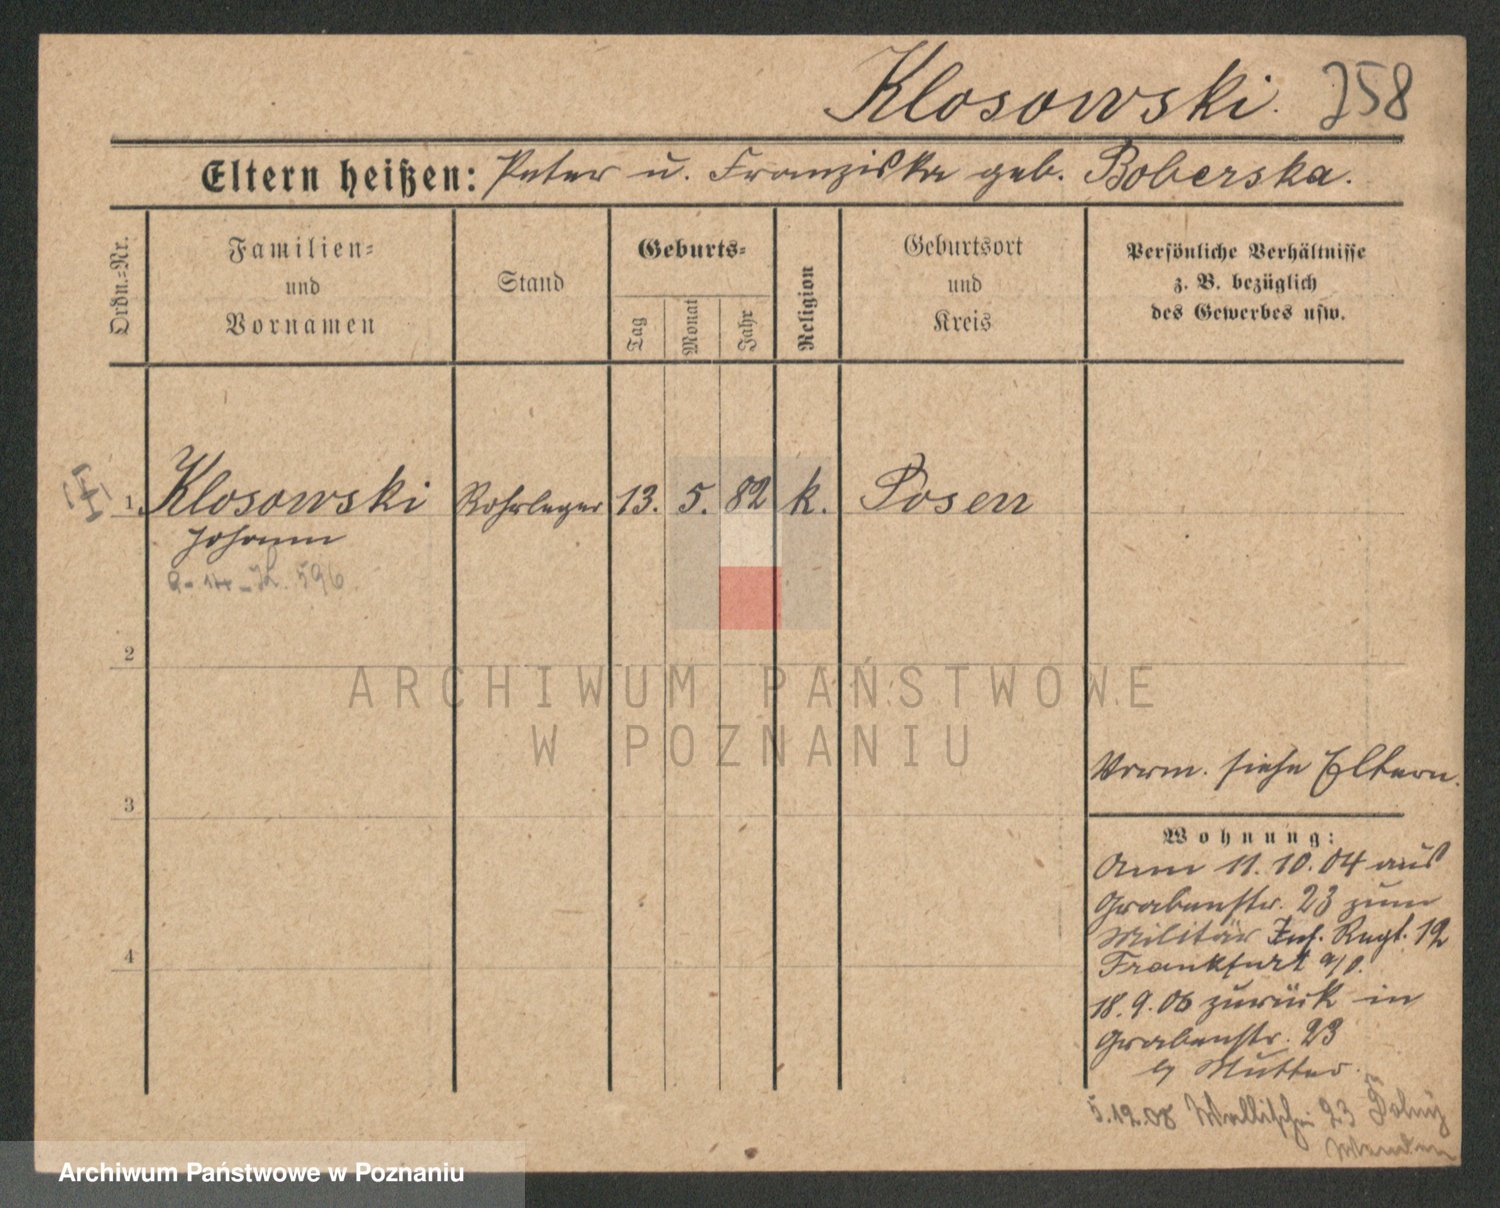 Klosowski. 758
Eltern heißen: Peter u. Franziska geb. Boberska.
Ordn.-Nr.
Familien-
und
Vornamen
Stand
Geburts-
Tag
Monat
Jahr
Religion
Geburtsort
und
Kreis
Persönliche Verhältnisse
z. B. bezüglich
des Gewerbes usw.
1 Klosowski Rohrleger 13. 5. 82 k. Posen
Johann
596
2
3
4
Verm. siehe Eltern.
Wohnung:
Am 11.10.04 aus
Grabenstr. 23 zum
Militär Inf. Regt. 12
Frankfurt a/O.
18.9.06 zurück in
Grabenstr. 23
b/ Mutter.
5.12.08 Wallischei 23
ARCHIWUM PAŃSTWOWE
W POZNANIU
Archiwum Państwowe w Poznaniu